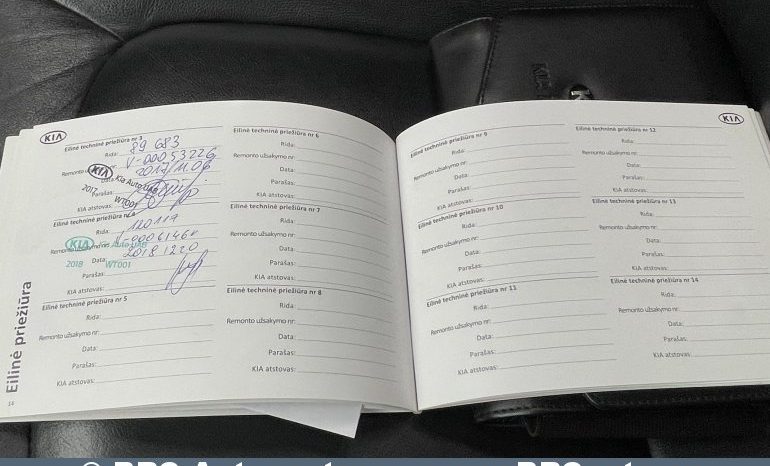 KIA
Eilinė techninė priežiūra nr 3
Rida: 89 683
Remonto užsakymo nr: V-00053226
Data: 2017/11.06
KIA Kia Auto UAB
2017 WT001
Parašas:
KIA atstovas:
Eilinė techninė priežiūra nr 4
Rida: 120119
Remonto užsakymo nr:
KIA Kia Auto UAB
Data: 2018 12 20
2018 WT001
Parašas:
KIA atstovas:
Eilinė techninė priežiūra nr 5
Rida:
Remonto užsakymo nr:
Data:
Parašas:
KIA atstovas:
Eilinė priežiūra
14
Eilinė techninė priežiūra nr 6
Rida:
Remonto užsakymo nr:
Data:
Parašas:
KIA atstovas:
Eilinė techninė priežiūra nr 7
Rida:
Remonto užsakymo nr:
Data:
Parašas:
KIA atstovas:
Eilinė techninė priežiūra nr 8
Rida:
Remonto užsakymo nr:
Data:
Parašas:
KIA atstovas:
Eilinė techninė priežiūra nr 9
Rida:
Remonto užsakymo nr:
Data:
Parašas:
KIA atstovas:
Eilinė techninė priežiūra nr 10
Rida:
Remonto užsakymo nr:
Data:
Parašas:
KIA atstovas:
Eilinė techninė priežiūra nr 11
Rida:
Remonto užsakymo nr:
Data:
Parašas:
KIA atstovas:
KIA
Eilinė techninė priežiūra nr 12
Rida:
Remonto užsakymo nr:
Data:
Parašas:
KIA atstovas:
Eilinė techninė priežiūra nr 13
Rida:
Remonto užsakymo nr:
Data:
Parašas:
KIA atstovas:
Eilinė techninė priežiūra nr 14
Rida:
Remonto užsakymo nr:
Data:
Parašas:
KIA atstovas: